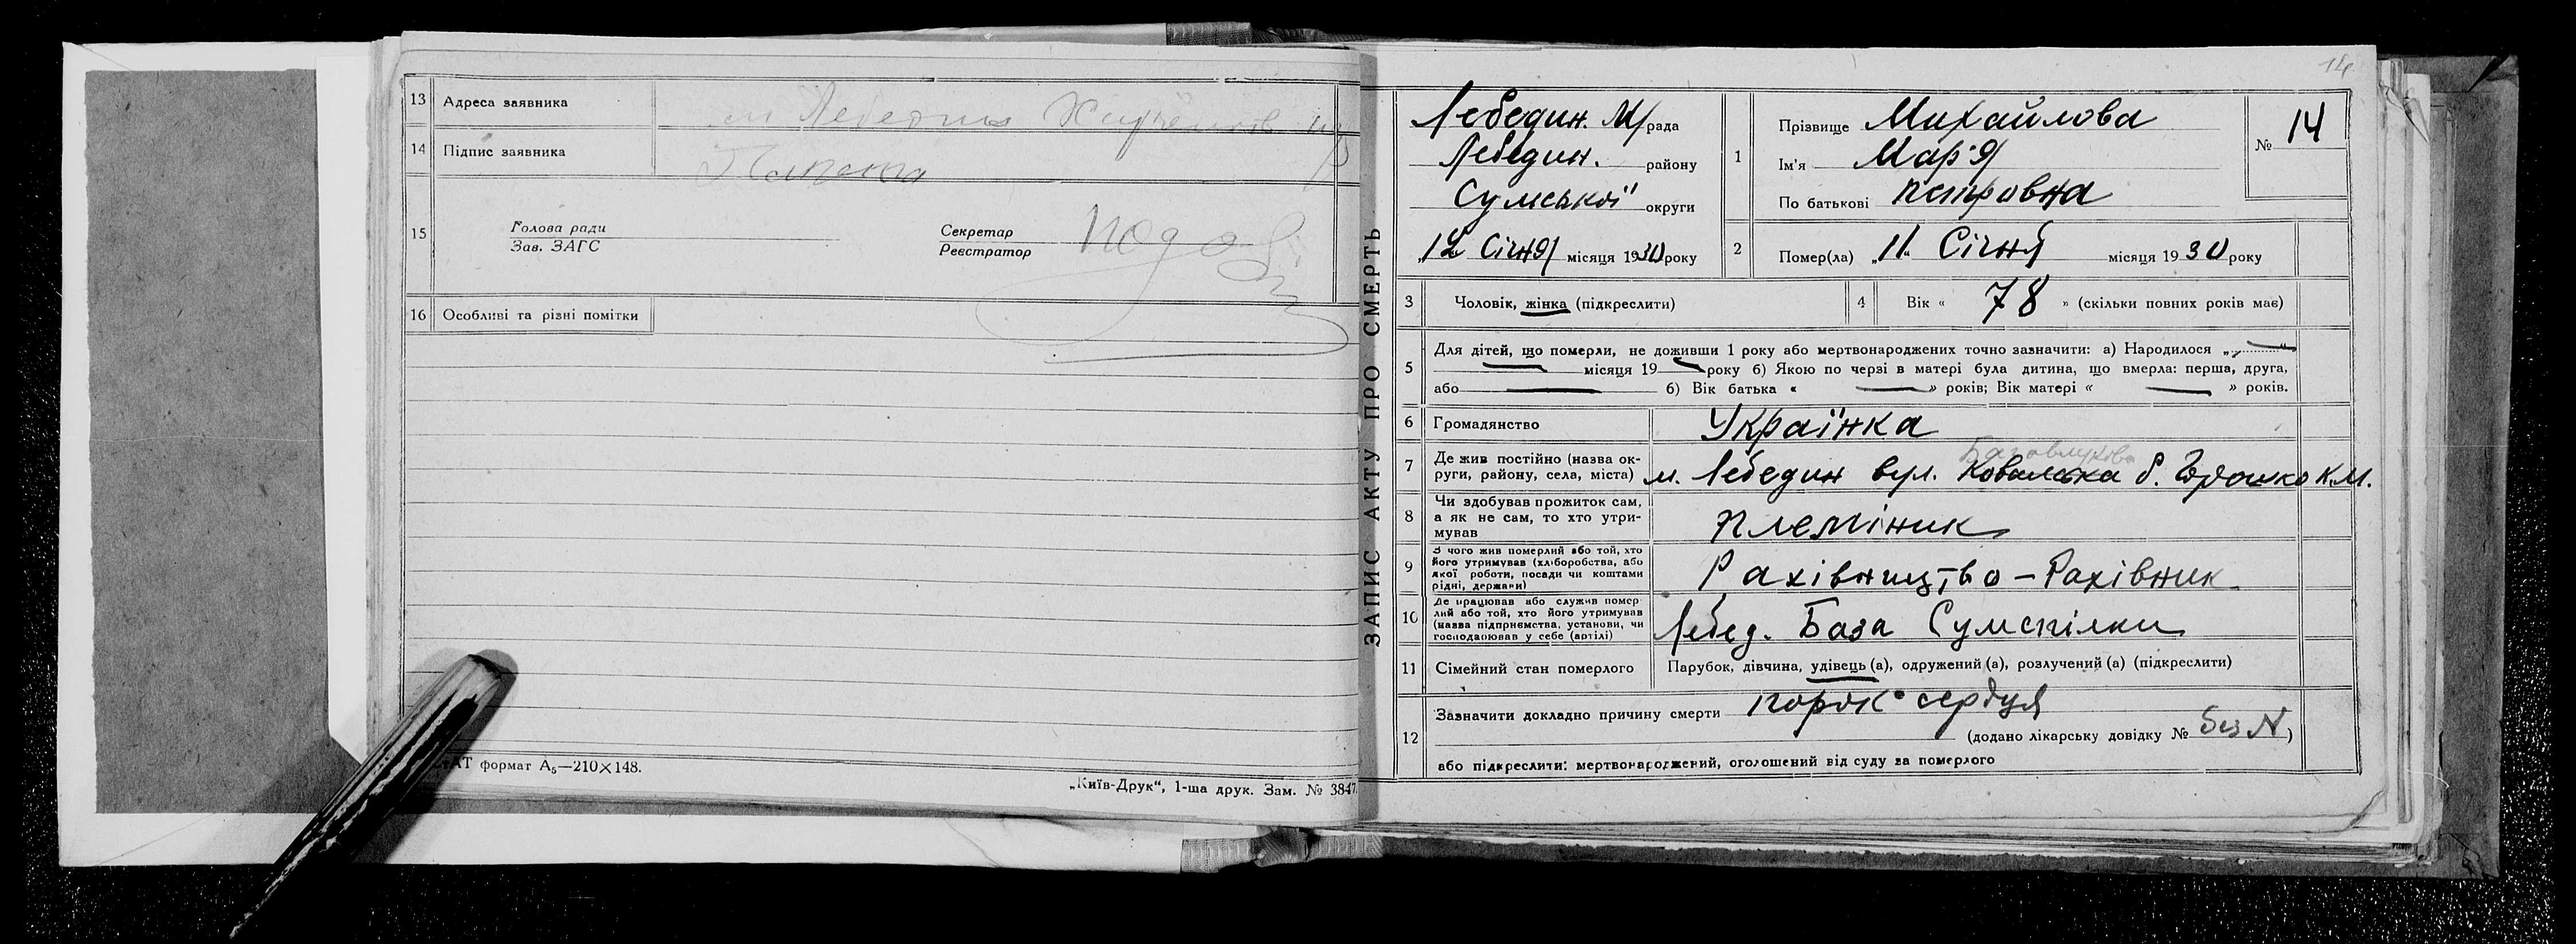 13 Адреса заявника м Лебедин
14 Підпис заявника
15 Голова ради
Зав. ЗАГС
Секретар
Реєстратор
16 Особливі та різні помітки
формат А₅—210×148.
„Київ-Друк“, 1-ша друк. Зам. № 3847
ЗАПИС АКТУ ПРО СМЕРТЬ
14
Лебедин. М/рада
Лебедин. району
Сумської округи
„12 Січня місяця 1930 року
1 Прізвище Михайлова
Ім'я Мар'я
По батькові петровна
№ 14
2 Помер(ла) „11“ Січня місяця 1930 року
3 Чоловік, жінка (підкреслити)
4 Вік « 78 » (скільки повних років має)
5 Для дітей, що померли, не доживши 1 року або мертвонароджених точно зазначити: а) Народилося „ — “
— місяця 19 — року б) Якою по черзі в матері була дитина, що вмерла: перша, друга,
або — б) Вік батька « — » років; Вік матері « — » років.
6 Громадянство Українка
7 Де жив постійно (назва ок-
руги, району, села, міста) м. Лебедин вул. Ковалська б. К.М.
8 Чи здобував прожиток сам,
а як не сам, то хто утри-
мував племіник
9 З чого жив померлий або той, хто
його утримував (хліборобства, або
якої роботи, посади чи коштами
рідні, держави) Рахівництво – Рахівник
10 Де працював або служив помер
лий або той, хто його утримував
(назва підприємства, установи, чи
господарював у себе (артілі) Лебед. База Сумспілки
11 Сімейний стан померлого Парубок, дівчина, удівець (а), одружений (а), розлучений (а) (підкреслити)
12 Зазначити докладно причину смерти порок сердця
(додано лікарську довідку № без N)
або підкреслити: мертвонароджений, оголошений від суду за померлого